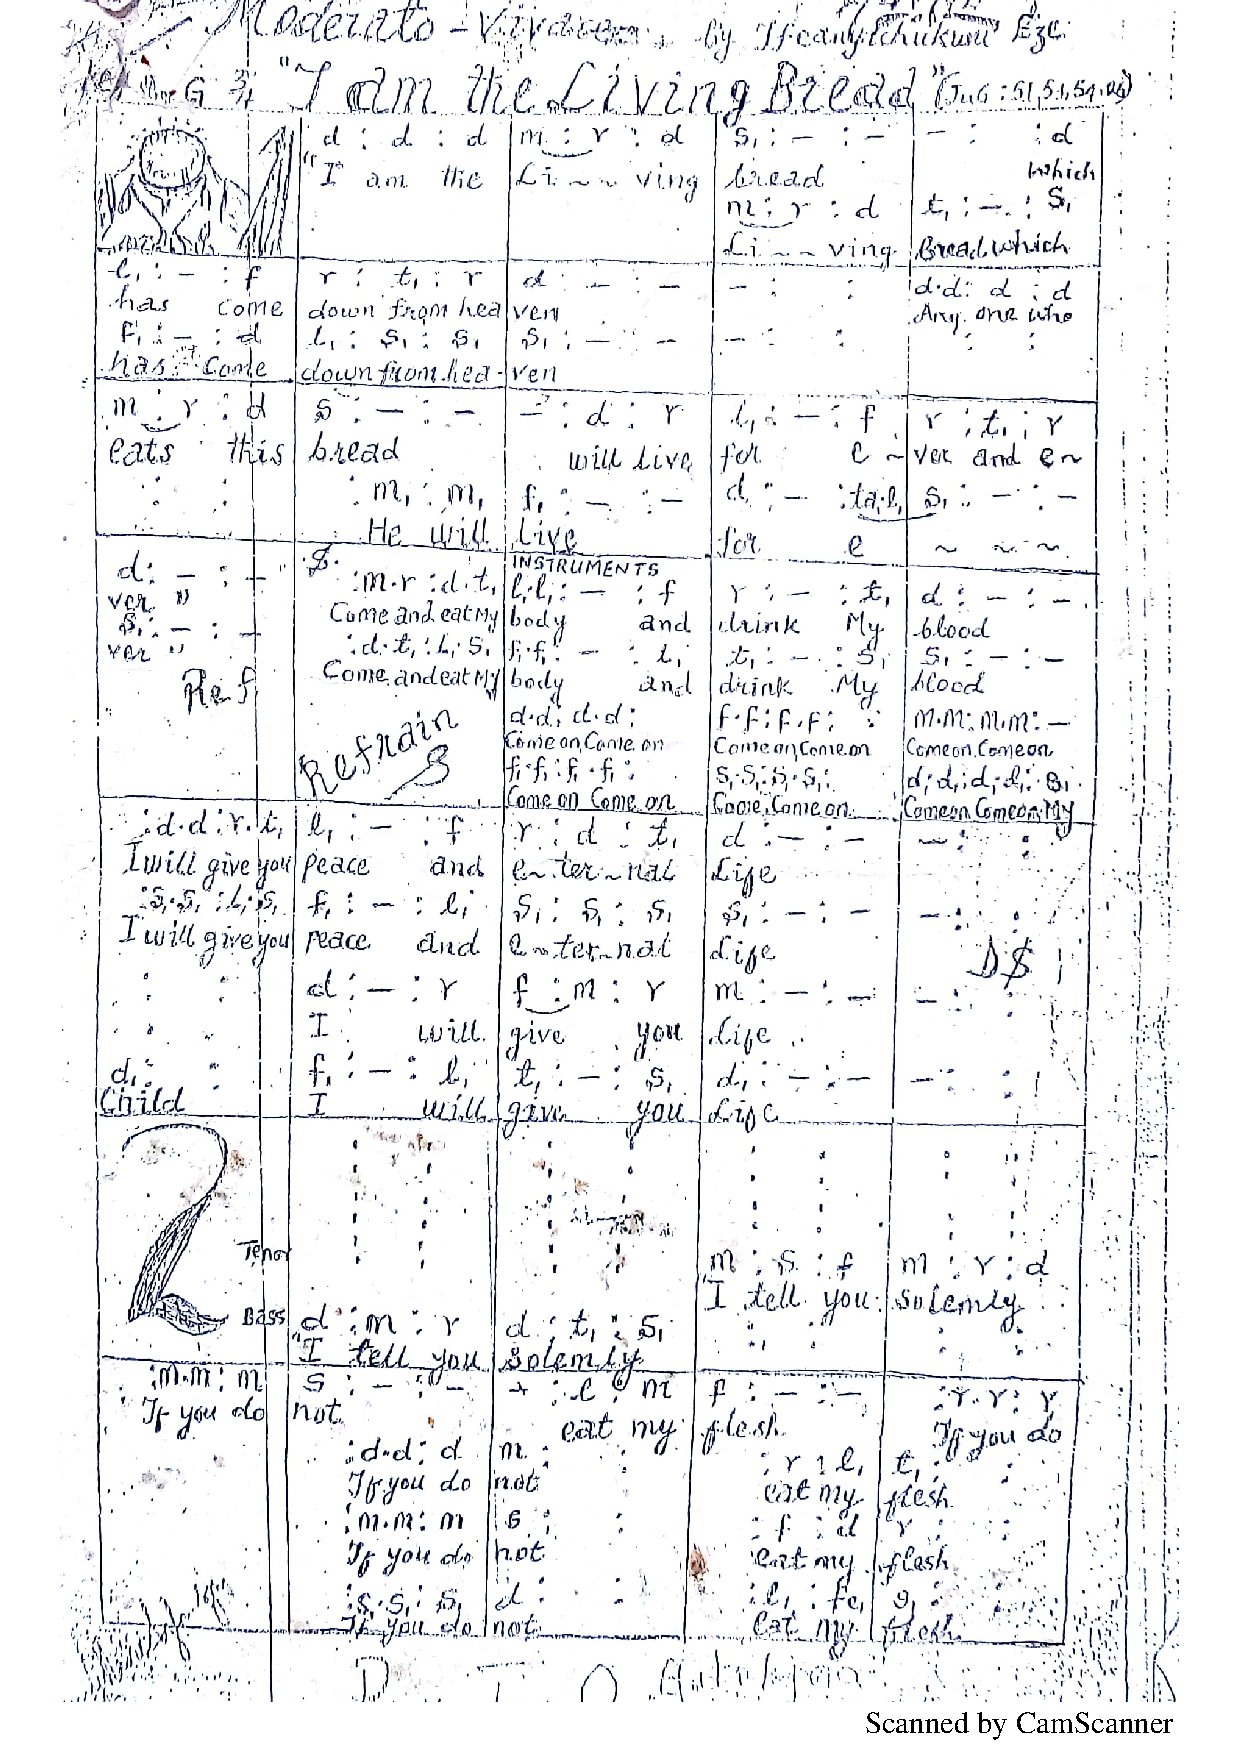 Moderato - Vivace. by Ifeanyichukwu Eze
G 3/4 "I am the Living Bread" (Jn 6: 51,
d : d : d m : r : d s, : — : — — : : d
"I am the Li ~ ~ ving bread which
m : r : d t, : — : s,
Li ~ ~ ving Bread which
l, : — : f r : t, : r d : — : — — : : d.d : d : d
has come down from hea ven Any one who
f, : — : d l, : s, : s, s, : — : — — : : : :
has come down from hea - ven
m : r : d s : — : — — : d : r l, : — : f r : t, : r
eats this bread will live for e ~ ver and e ~
: : : m, : m, f, : — : — d : — : ta,.l, s, : — : —
He will live for e ~ ~ ~
INSTRUMENTS
d : — : — : m.r : d.t, l,.l, : — : f r : — : t, d : — : —
ver " Come and eat My body and drink My blood
s, : — : — : d.t, : l,.s, f,.f, : — : l, t, : — : s, s, : — : —
ver " Come and eat My body and drink My blood
Ref
d.d : d.d : f.f : f.f : : m.m : m.m : —
Refrain
Come on, Come on Come on, Come on Come on, Come on
S
f,.f, : f,.f, : s,.s, : s,.s, : d,.d, : d,.d, : s,
Come on Come on Come, Come on Come on, Come on, My
: d.d : r.t, l, : — : f r : d : t, d : — : — — : :
I will give you peace and e ~ ter ~ nal Life
: s,.s, : l,.s, f, : — : l, s, : s, : s, s, : — : — — : :
I will give you peace and e ~ ter ~ nal Life
D S
: : d : — : r f : m : r m : — : — — : :
I will give you life
d, : : f, : — : l, t, : — : s, d, : — : — — : :
Child I will give you Life
2
Tenor m : s : f m : r : d
I tell you solemly
Bass d : m : r d : t, : s,
"I tell you Solemly
: m.m : m s : — : — : l : m f : — : — : r.r : r
If you do not eat my flesh If you do
: d.d : d m : : : r : l, t, :
If you do not eat my flesh
: m.m : m s : : : f : d r : :
If you do not eat my flesh
: s,.s, : s, d : : : l, : fe, s, :
If you do not Eat my flesh
P T O
Scanned by CamScanner